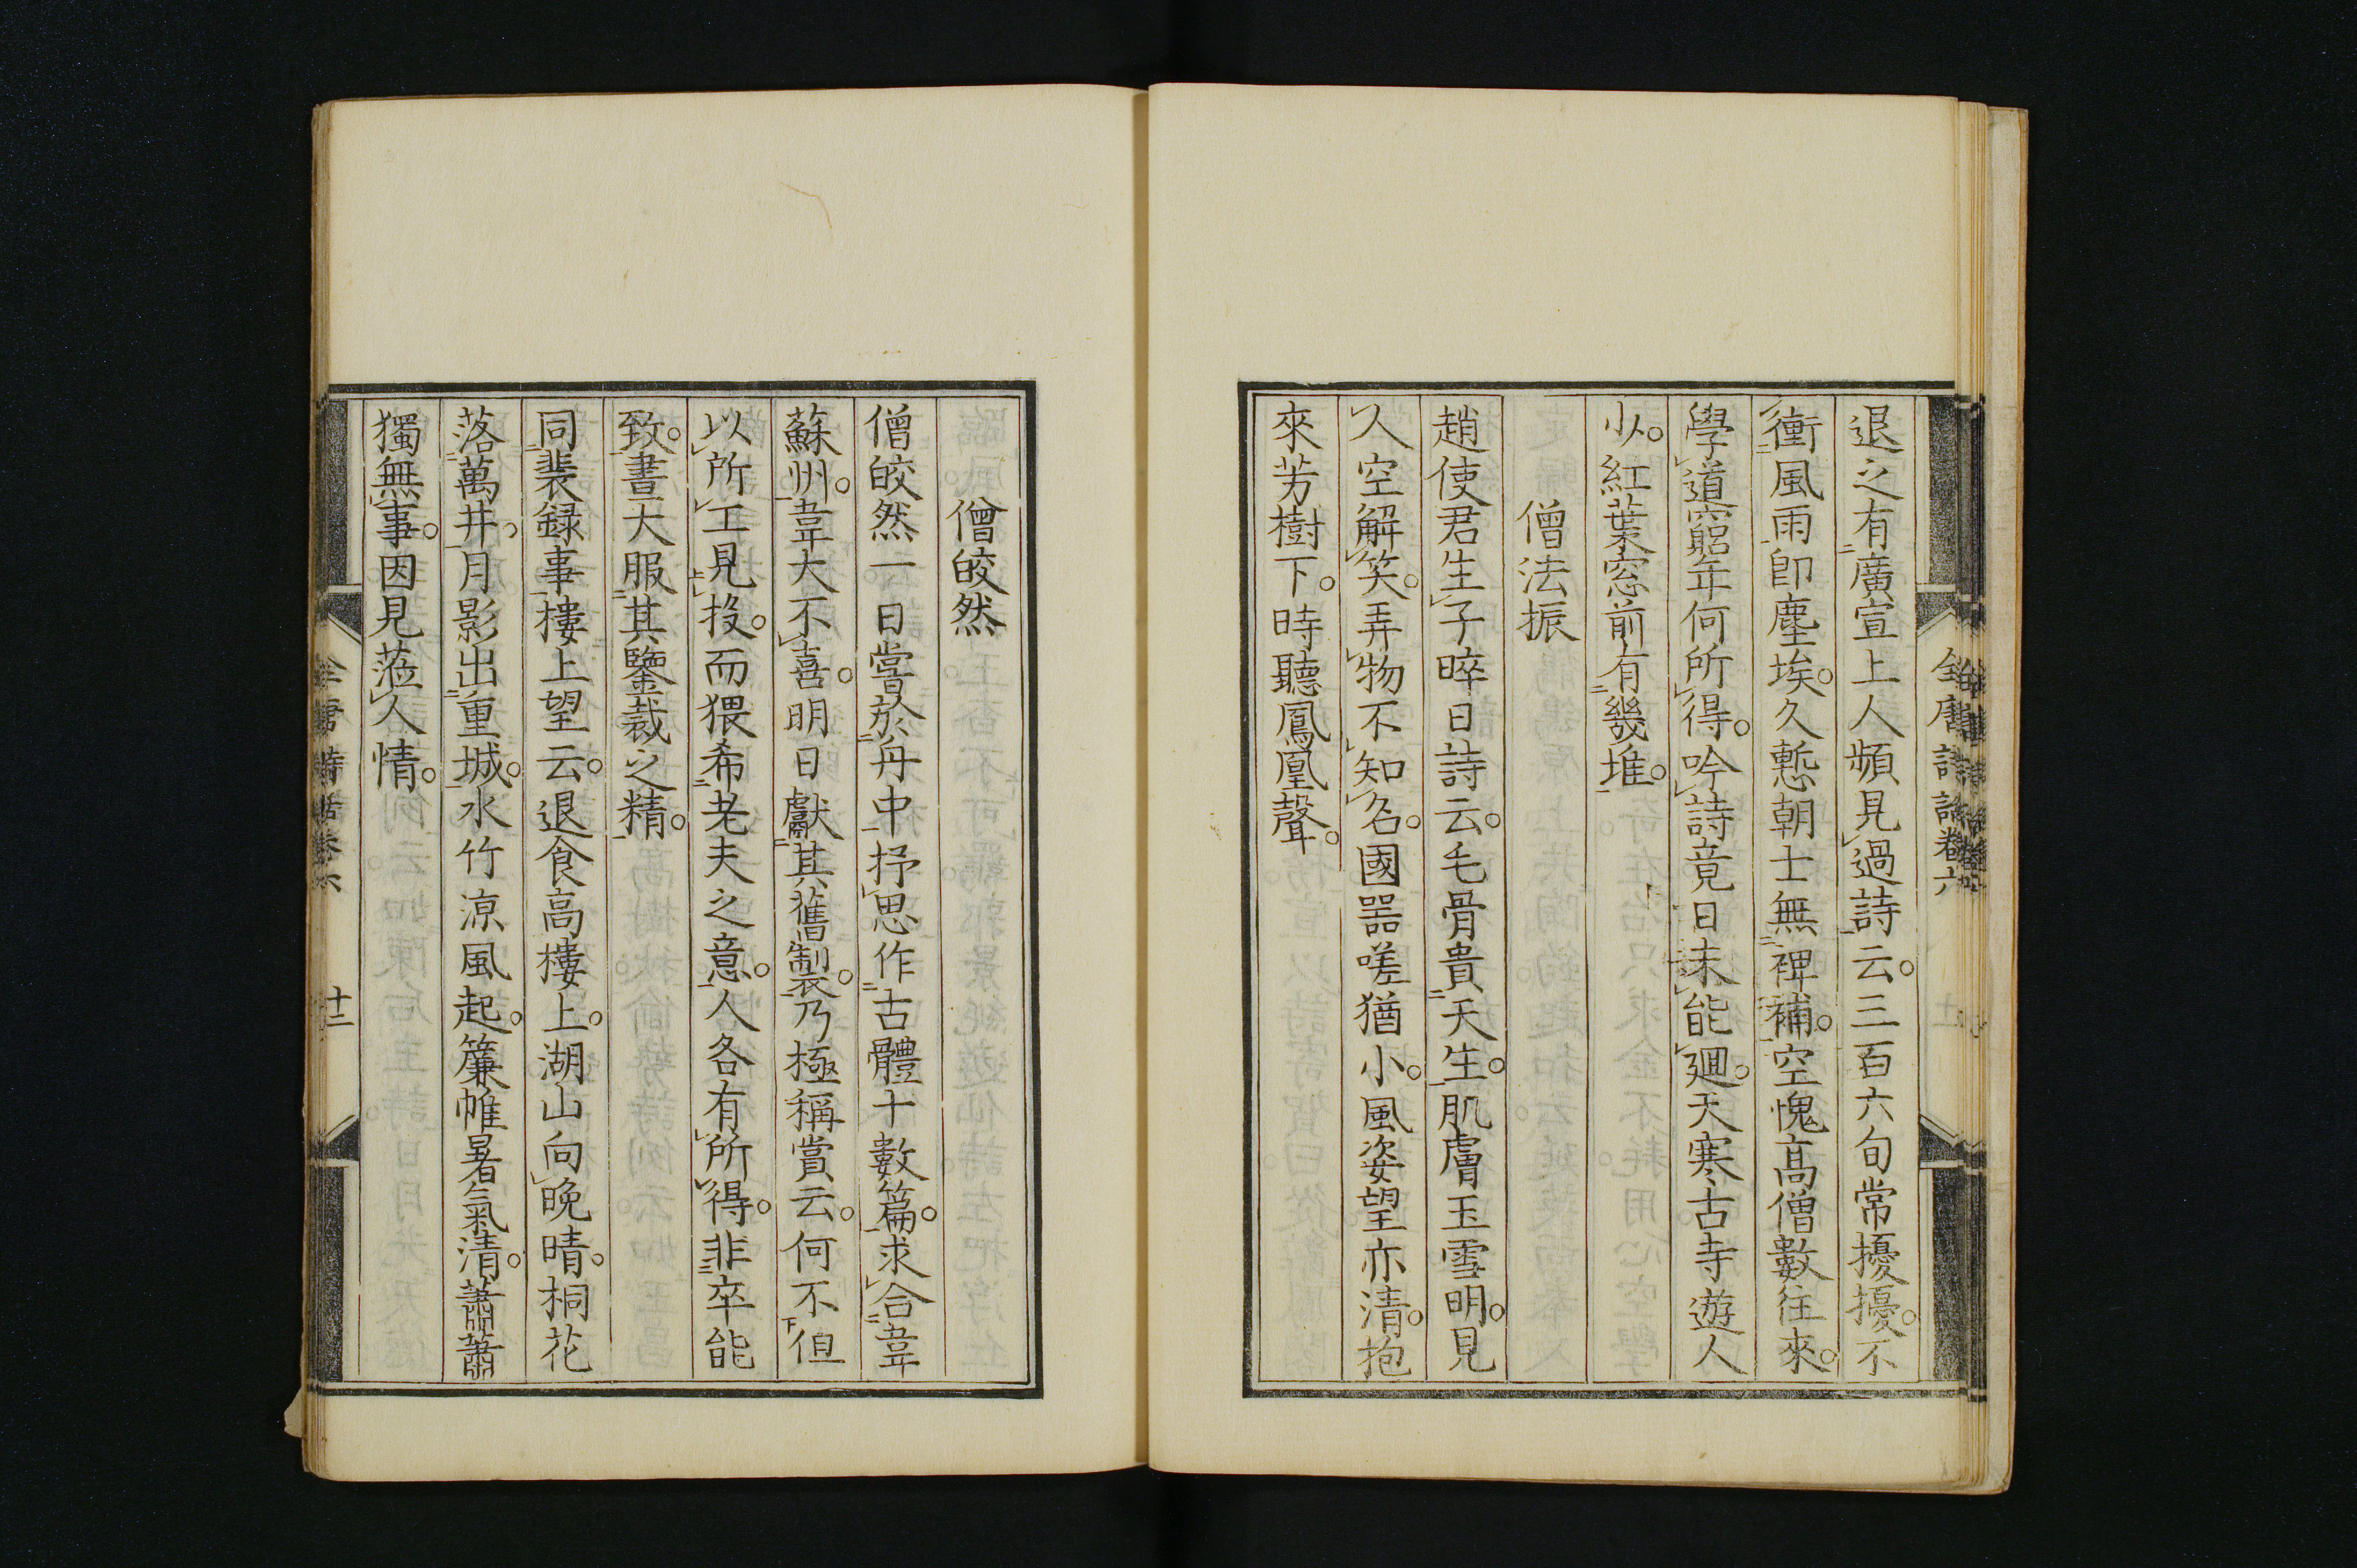 退之有廣宣上人頻見過詩云。三百六旬常擾擾。不
衝風雨即塵埃。久慙朝士無裨補。空愧高僧數往來。
學道窮年何所得。吟詩竟日未能廻。天寒古寺遊人
少。紅葉窓前有幾堆。
僧法振
趙使君生子晬日詩云。毛骨貴天生。肌膚玉雪明。見
人空解笑。弄物不知名。國器嗟猶小。風姿望亦清。抱
來芳樹下。時聽鳳凰聲。
全唐詩話卷六
僧皎然
僧皎然一日嘗於舟中抒思作古體十數篇。求合韋
蘇州。韋大不喜。明日獻其舊製。乃極稱賞云。何不但
以所工見投。而猥希老夫之意。人各有所得。非卒能
致。晝大服其鑒裁之精。
同裴録事樓上望云。退食高樓上。湖山向晚晴。桐花
落萬井。月影出重城。水竹凉風起。簾帷暑氣清。蕭蕭
獨無事。因見蒞人情。
全唐詩話卷六 十二